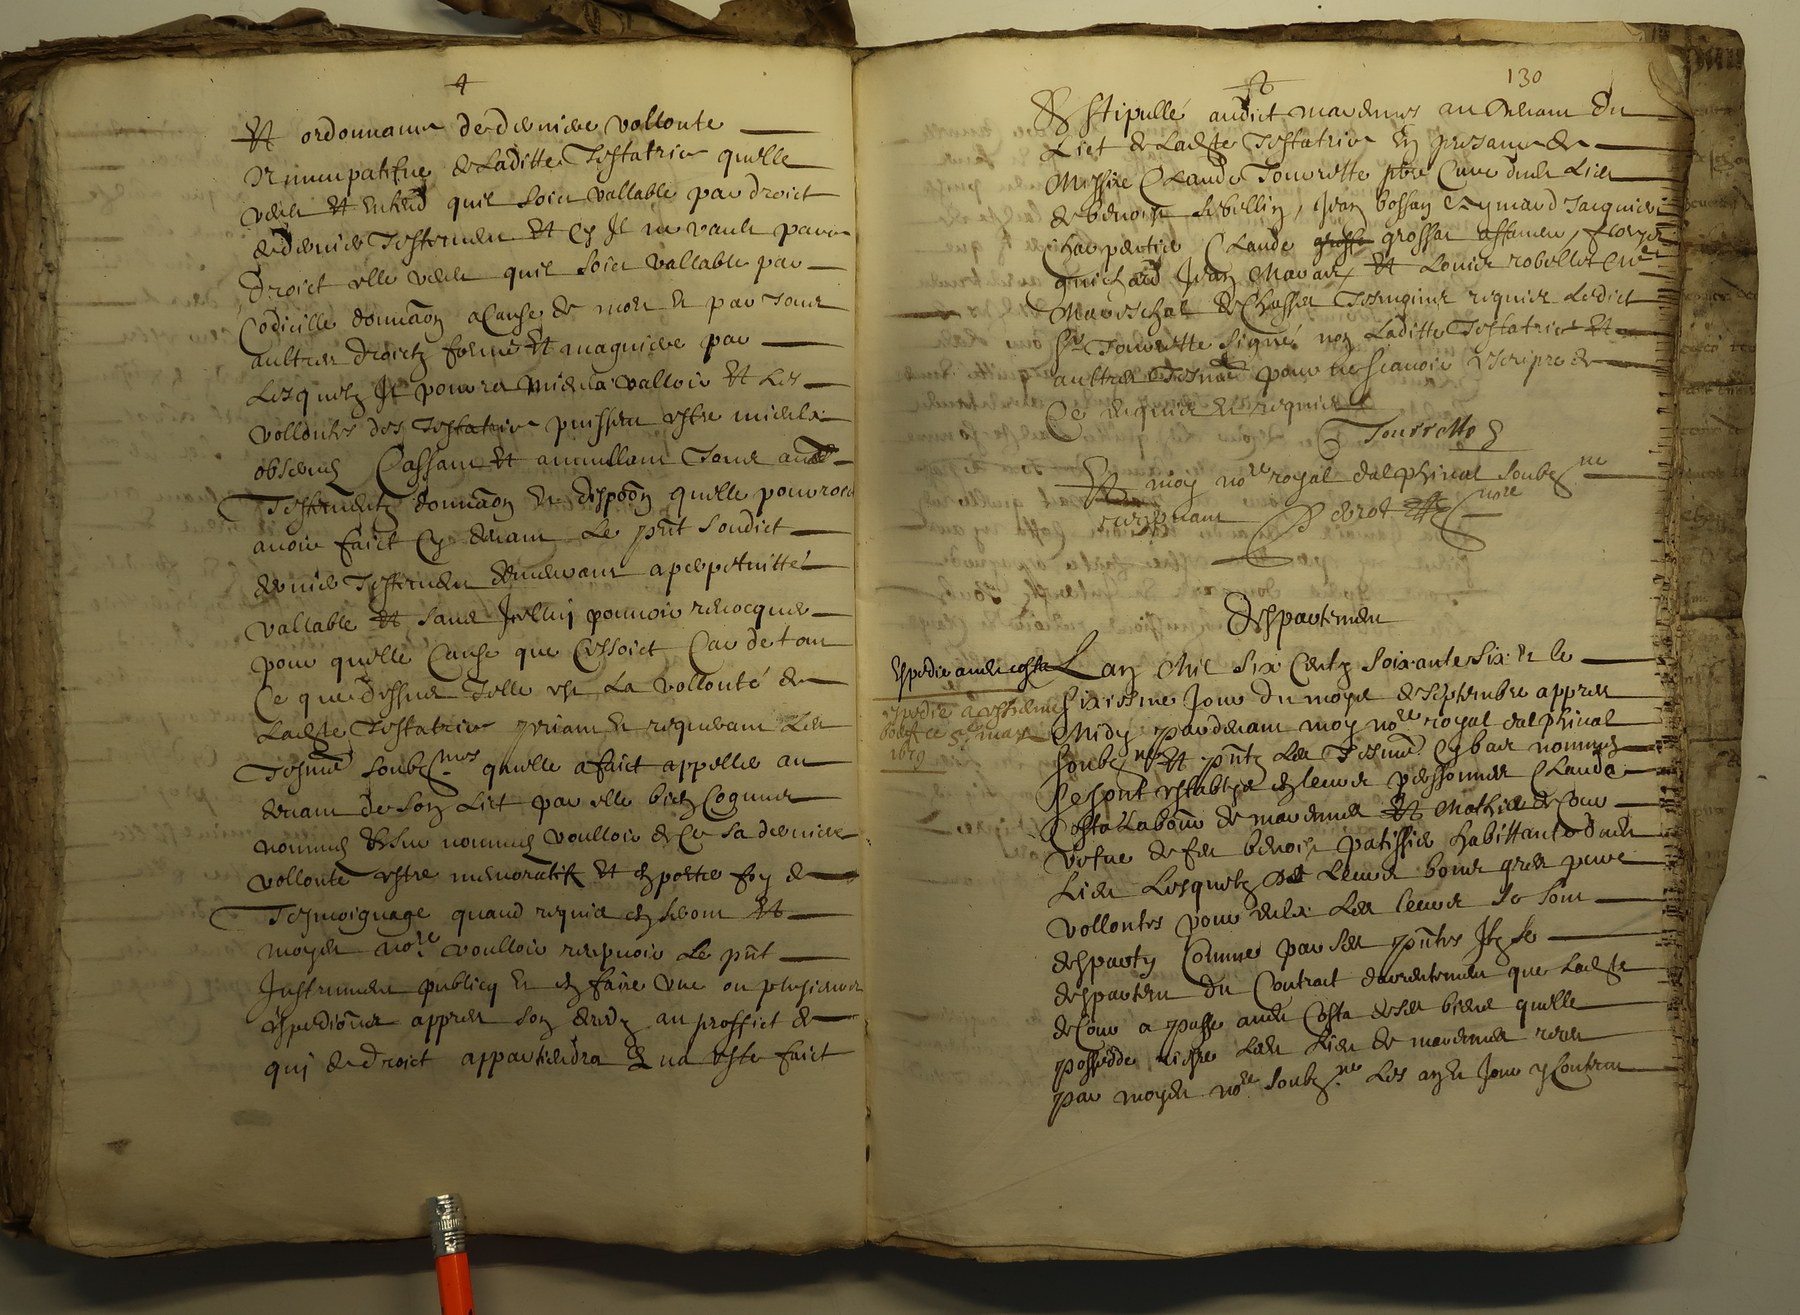 Et ordonnance de derniere vollonte
Nunupatifve de Laditte Testatrice quelle
veult et entend quil soict vallable par droict
de dernier Testement et sy Il ne vault par ce
droict elle veult quil soict vallable par
Codicille donnaon a Cause de mort et par tous
aultres droictz forme et magniere par
Lesquelz Il pourra mieulx valloir et Les
vollontes des Testatrice puissent estre mieulx
observes Cassant et annullant Tous aultres
Testements donnaon et dispoon quelle pourroit
avoir faict cy devant Le pnt soudict
dernier Testement demeurant a perpetuitté
vallable et sans Icelluy pouvoir revocquer
pour quelle Cause que Cessoict Car de tout
Ce que dessus Telle est La vollonté de
Ladite Testatrice priant et requerant Les
Tesmé soubz.nes quelle a faict appeller au
devant de son Lict par elle bien Cognus
nommes et sur nommes voulloir de Ce sa derniere
vollonte estre memoratifz et en porter foy et
Tesmoignage quand requis en seront Et
moyde nore voulloir recepvoir Le pnt
Instrument publicq et en faire une ou plusieurs
expedions appres son deces au proffict de
qui de droict appartiendra Et na esté faict
130
Et stipullé audict mardenns au devant du
Lict de Ladite Testatrice En presance de
Messire Claude Tourrette ptre Cure dudt Lieu
de benoist sibellin, Jean bossan Eymard Jacquier
charpentier Claude grossat
guichard Jean Marat, Et Louis robellet
Mareschal de Chasse Tesmoings requis Ledict
Sr Tourrette signé non Laditte Testatrice et
aultres Tesmé pour ne scavoir escripre de
Ce enquis et requis
Tourrette
Et moy nore royal dalphinal soubz.ne
recepvant nore
Despartement
Expedie audt costa
Expedie a
ce 5e may
1679
Lan Mil six Centz soixante six et le
sixiesme Jour du moys de septembre appres
Midy pardevant moy nore royal dalphinal
soubz.né et pntz Les Tesme Cy bas nommes
se sont establys en leurs personnes Claude
Costa Labour de mardenne et Mathie de Cour
vefve de feu benoist patissier habittant dudt
Lieu Lesquelz de Leurs bons gres pure
vollontes pour eulx Les leurs se sont
desparty Comme par ses pntes Ilz se
despartent du Contract darrentement que Ladite
de Cour a passe audt Costa de ses biens quelle
possedde riere Les Lieu de mardenne receu
par moyde nore soubz.ne Les an et Jour y Contenu